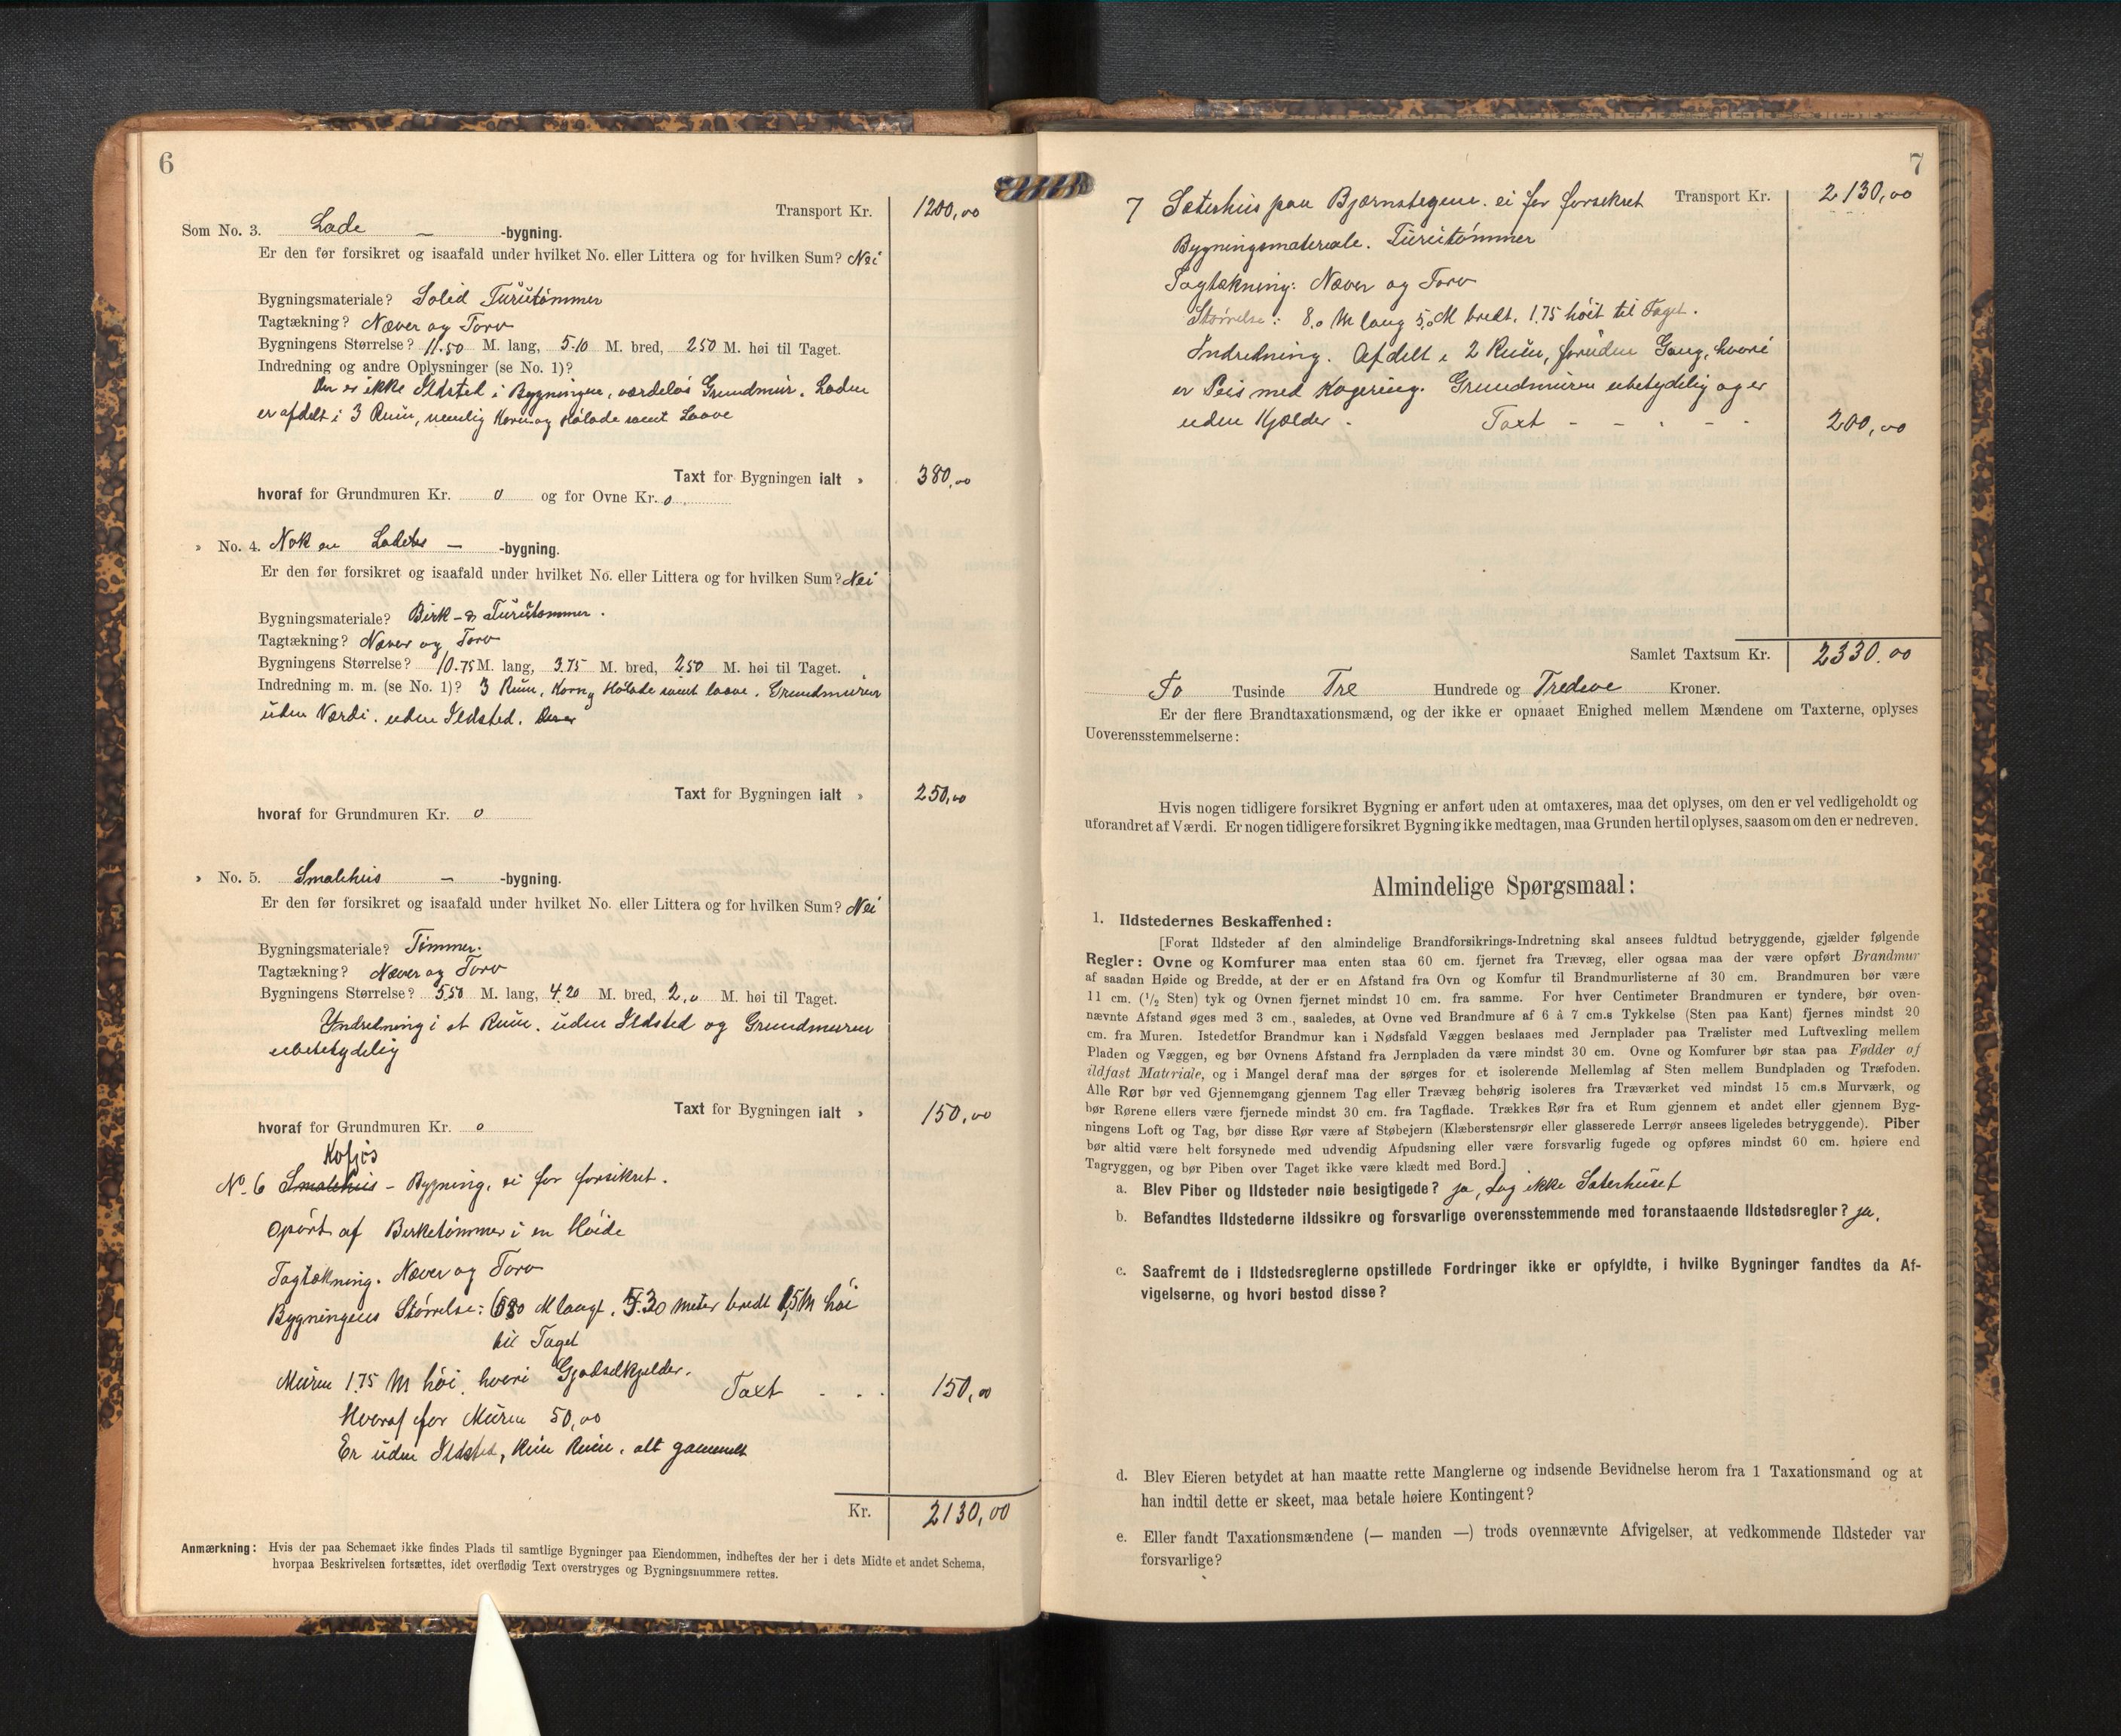 6
Transport Kr. 1200,00
Som No. 3. Lade — -bygning.
Er den før forsikret og isaafald under hvilket No. eller Littera og for hvilken Sum? Nei
Bygningsmateriale? Solid Furutømmer
Tagtækning? Næver og Torv
Bygningens Størrelse? 11.50 M. lang, 5.10 M. bred, 250 M. høi til Taget.
Indredning og andre Oplysninger (se No. 1)?
Der er ikke Ildsted i Bygningen, værdeløs Grundmur. Laden
er afdelt i 3 Rum, nemlig Korn og Hølade samt Laave
Taxt for Bygningen ialt » 380,00
hvoraf for Grundmuren Kr. 0 og for Ovne Kr. 0
» No. 4. Nok en Lade — -bygning.
Er den før forsikret og isaafald under hvilket No. eller Littera og for hvilken Sum? Nei
Bygningsmateriale? Birk- & Furutømmer.
Tagtækning? Næver og Torv
Bygningens Størrelse? 10.75 M. lang, 3.75 M. bred, 250 M. høi til Taget.
Indredning m. m. (se No. 1)? 3 Rum, Korn og Hølade samt laave. Grundmuren
uden Værdi. uden Ildsted.
Taxt for Bygningen ialt » 250,00
hvoraf for Grundmuren Kr. 0
» No. 5. Smalehus — -bygning.
Er den før forsikret og isaafald under hvilket No. eller Littera og for hvilken Sum? Nei
Bygningsmateriale? Tømmer.
Tagtækning? Næver og Torv
Bygningens Størrelse? 5.50 M. lang, 4.20 M. bred, 2,0 M. høi til Taget.
Indredning i et Rum. uden Ildsted og Grundmuren
ubetydelig
Taxt for Bygningen ialt » 150,00
hvoraf for Grundmuren Kr. 0
Kofjøs
No. 6 Smalehus - Bygning, ei før forsikret.
Opført af Birketømmer i en Høide
Tagtækning. Næver og Torv
Bygningens Størrelse: M langt, 5.30 meter bredt 1,5 M høi
til Taget
Muren 1.75 M høi, hvori Gjødselkjelder.
Taxt - - - 150,00
Hvoraf for Muren 50,00
Er uden Ildsted, Rum, alt gammelt
Kr. 2130,00
Anmærkning: Hvis der paa Schemaet ikke findes Plads til samtlige Bygninger paa Eiendommen, indheftes der her i dets Midte et andet Schema,
hvorpaa Beskrivelsen fortsættes, idet overflødig Text overstryges og Bygningsnummere rettes.
7
7 Sæterhus paa Bjørnstegene. ei før forsikret Transport Kr. 2130,00
Bygningsmateriale. Furutømmer
Tagtækning: Næver og Torv
Størrelse: 8,0 M lang 5,0 M bredt, 1.75 høit til Taget.
Indredning. Afdelt i 2 Rum, foruden Gang, hvori
er Peis med Kogering. Grundmuren ubetydelig og er
uden Kjælder. Taxt - - - - - 200,00
Samlet Taxtsum Kr. 2330.00
To Tusinde Tre Hundrede og Tredeve Kroner.
Er der flere Brandtaxationsmænd, og der ikke er opnaaet Enighed mellem Mændene om Taxterne, oplyses
Uoverensstemmelserne:
Hvis nogen tidligere forsikret Bygning er anført uden at omtaxeres, maa det oplyses, om den er vel vedligeholdt og
uforandret af Værdi. Er nogen tidligere forsikret Bygning ikke medtagen, maa Grunden hertil oplyses, saasom om den er nedreven.
Almindelige Spørgsmaal:
1. Ildstedernes Beskaffenhed:
[Forat Ildsteder af den almindelige Brandforsikrings-Indretning skal ansees fuldtud betryggende, gjælder følgende
Regler: Ovne og Komfurer maa enten staa 60 cm. fjernet fra Trævæg, eller ogsaa maa der være opført Brandmur
af saadan Høide og Bredde, at der er en Afstand fra Ovn og Komfur til Brandmurlisterne af 30 cm. Brandmuren bør være
11 cm. (1/2 Sten) tyk og Ovnen fjernet mindst 10 cm. fra samme. For hver Centimeter Brandmuren er tyndere, bør oven-
nævnte Afstand øges med 3 cm., saaledes, at Ovne ved Brandmure af 6 à 7 cm.s Tykkelse (Sten paa Kant) fjernes mindst 20
cm. fra Muren. Istedetfor Brandmur kan i Nødsfald Væggen beslaaes med Jernplader paa Trælister med Luftvexling mellem
Pladen og Væggen, eg bør Ovnens Afstand fra Jernpladen da være mindst 30 cm. Ovne og Komfurer bør staa paa Fødder af
ildfast Materiale, og i Mangel deraf maa der sørges for et isolerende Mellemlag af Sten mellem Bundpladen og Træfoden.
Alle Rør bør ved Gjennemgang gjennem Tag eller Trævæg behørig isoleres fra Træværket ved mindst 15 cm.s Murværk, og
bør Rørene ellers være fjernede mindst 30 cm. fra Tagflade. Trækkes Rør fra et Rum gjennem et andet eller gjennem Byg-
ningens Loft og Tag, bør disse Rør være af Støbejern (Klæberstensrør eller glasserede Lerrør ansees ligeledes betryggende). Piber
bør altid være helt forsynede med udvendig Afpudsning eller være forsvarlig fugede og opføres mindst 60 cm. høiere end
Tagryggen, og bør Piben over Taget ikke være klædt med Bord.]
a. Blev Piber og Ildsteder nøie besigtigede? ja, dog ikke Sæterhuset
b. Befandtes Ildstederne ildssikre og forsvarlige overensstemmende med foranstaaende Ildstedsregler? ja.
c. Saafremt de i Ildstedsreglerne opstillede Fordringer ikke er opfyldte, i hvilke Bygninger fandtes da Af-
vigelserne, og hvori bestod disse?
d. Blev Eieren betydet at han maatte rette Manglerne og indsende Bevidnelse herom fra 1 Taxationsmand og at
han indtil dette er skeet, maa betale høiere Kontingent?
e. Eller fandt Taxationsmændene (— manden —) trods ovennævnte Afvigelser, at vedkommende Ildsteder var
forsvarlige?